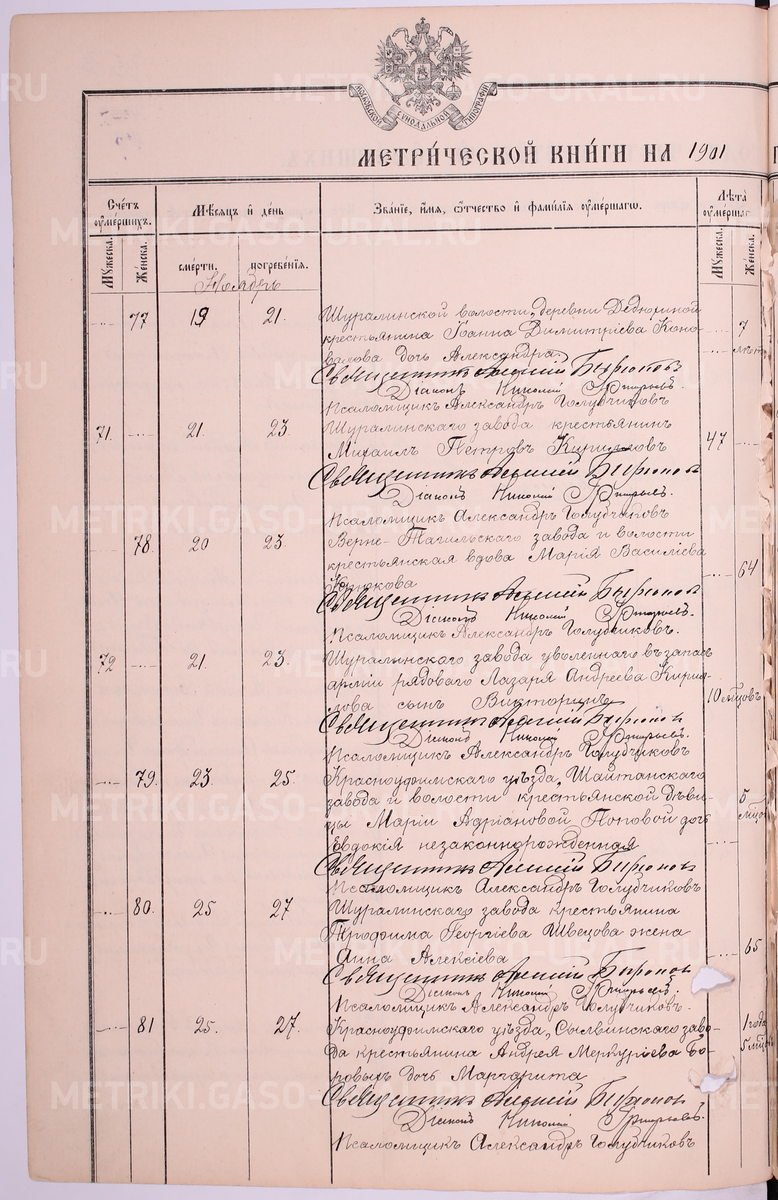 МОСКОВСКОЙ СИНОДАЛЬНОЙ ТИПОГРАФІИ
МЕТРИ́ЧЕСКОЙ КНИ́ГИ НА 1901
Счетъ ѹмершихъ.
Мѣсяцъ и день
Званіе, имя, отчество и фамилія ѹмершаго.
Лѣта ѹмершаг
Мѹжеска.
Женска.
смерти.
погребенія.
Мѹжеска.
Женска.
Ноябрь
77 19 21. Шуралинской волости, деревни Дедюриной
крестьянина Іоанна Димитріева Коно- 7
валова дочь Александра лѣтъ
Священникъ Алексій Бирюковъ
Діаконъ Николай Григорьевъ.
Псаломщикъ Александръ Голубчиковъ
71. 21. 23 Шуралинскаго завода крестьянинъ
Михаилъ Петровъ Кирилловъ 47
Священникъ Алексій Бирюковъ
Діаконъ Николай Григорьевъ.
Псаломщикъ Александръ Голубчиковъ
78. 20 23. Верхне-Тагильскаго завода и волости
крестьянская вдова Марія Василіева 64
Священникъ Алексій Бирюковъ
Діаконъ Николай Григорьевъ.
Псаломщикъ Александръ Голубчиковъ.
72 21. 23. Шуралинскаго завода уволеннаго въ запасъ
арміи рядоваго Лазаря Андреева Кирил-
лова сынъ Викторинъ 10 мѣсяцовъ
Священникъ Алексій Бирюковъ
Діаконъ Николай Григорьевъ.
Псаломщикъ Александръ Голубчиковъ
79. 23. 25. Красноуфимскаго уѣзда, Шайтанскаго
завода и волости крестьянской дѣви- 5
цы Маріи Адріановой Поповой дочь
Евдокія незаконнорожденная
Священникъ Алексій Бирюковъ
Псаломщикъ Александръ Голубчиковъ
80. 25 27 Шуралинскаго завода крестьянина
Трофима Георгіева Швецова жена
Анна Алексіева 65
Священникъ Алексій Бирюковъ
Діаконъ Николай Григорьевъ.
Псаломщикъ Александръ Голубчиковъ.
81 25. 27. Красноуфимскаго уѣзда, Сылвинскаго заво- 1 годъ
да крестьянина Андрея Меркуріева Бо- 5 мѣсяцо
ровыхъ дочь Маргарита
Священникъ Алексій Бирюковъ
Діаконъ Николай Григорьевъ.
Псаломщикъ Александръ Голубчиковъ
METRIKI.GASO-URAL.RU